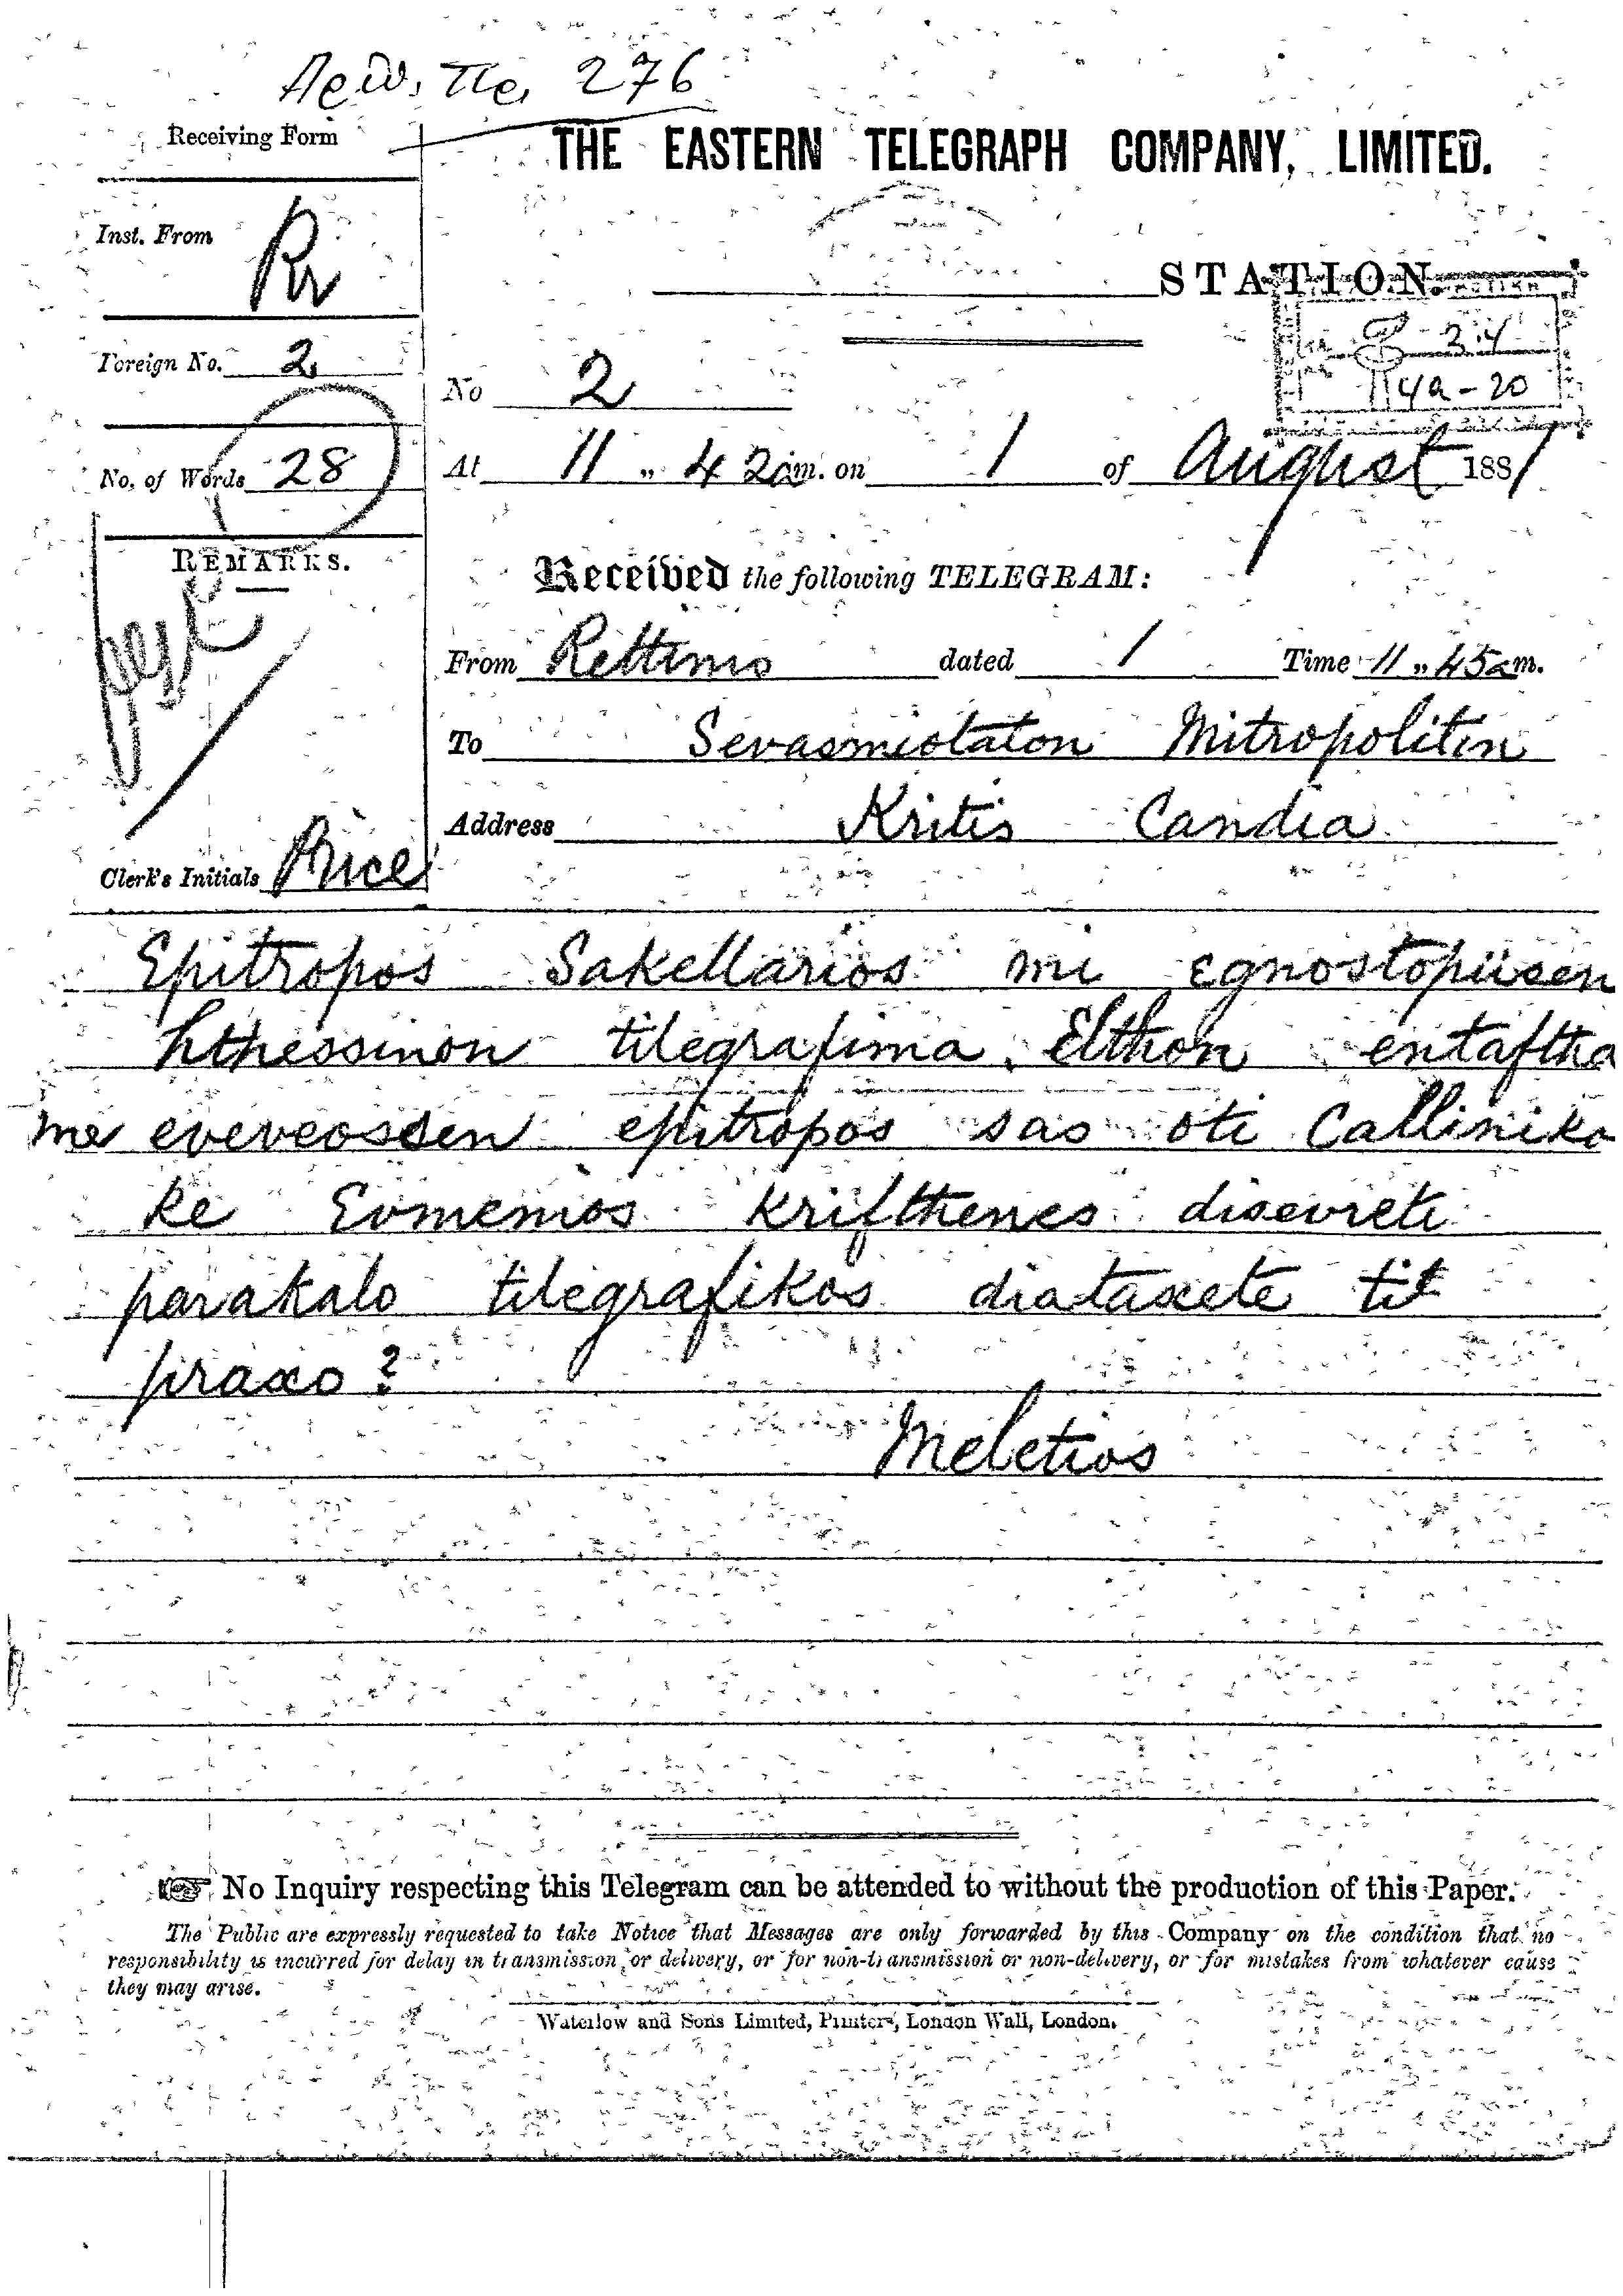 Αριθ. Πρ. 276
Receiving Form
THE EASTERN TELEGRAPH COMPANY, LIMITED.
Inst. From Rr
STATION
Foreign No. 2
34
4a - 20
No 2
No. of Words 28
At 11 „ 42 a m. on 1 of August 1881
REMARKS.
Received the following TELEGRAM:
From Rettimo dated 1 Time 11 „ 45 a m.
To Sevasmiotaton Mitropolitin
Address Kritis Candia
Clerk's Initials Price
Epitropos Sakellarios mi egnostopiisen
hthessinon tilegrafima. Elthon entaftha
me eveveossen epitropos sas oti Calliniko
ke Evmenios krifthenes
parakalo tilegrafikos diataxete tit
praxo?
Meletios
No Inquiry respecting this Telegram can be attended to without the production of this Paper.
The Public are expressly requested to take Notice that Messages are only forwarded by this Company on the condition that no
responsibility is incurred for delay in transmission or delivery, or for non-transmission or non-delivery, or for mistakes from whatever cause
they may arise.
Waterlow and Sons Limited, Printers, London Wall, London.